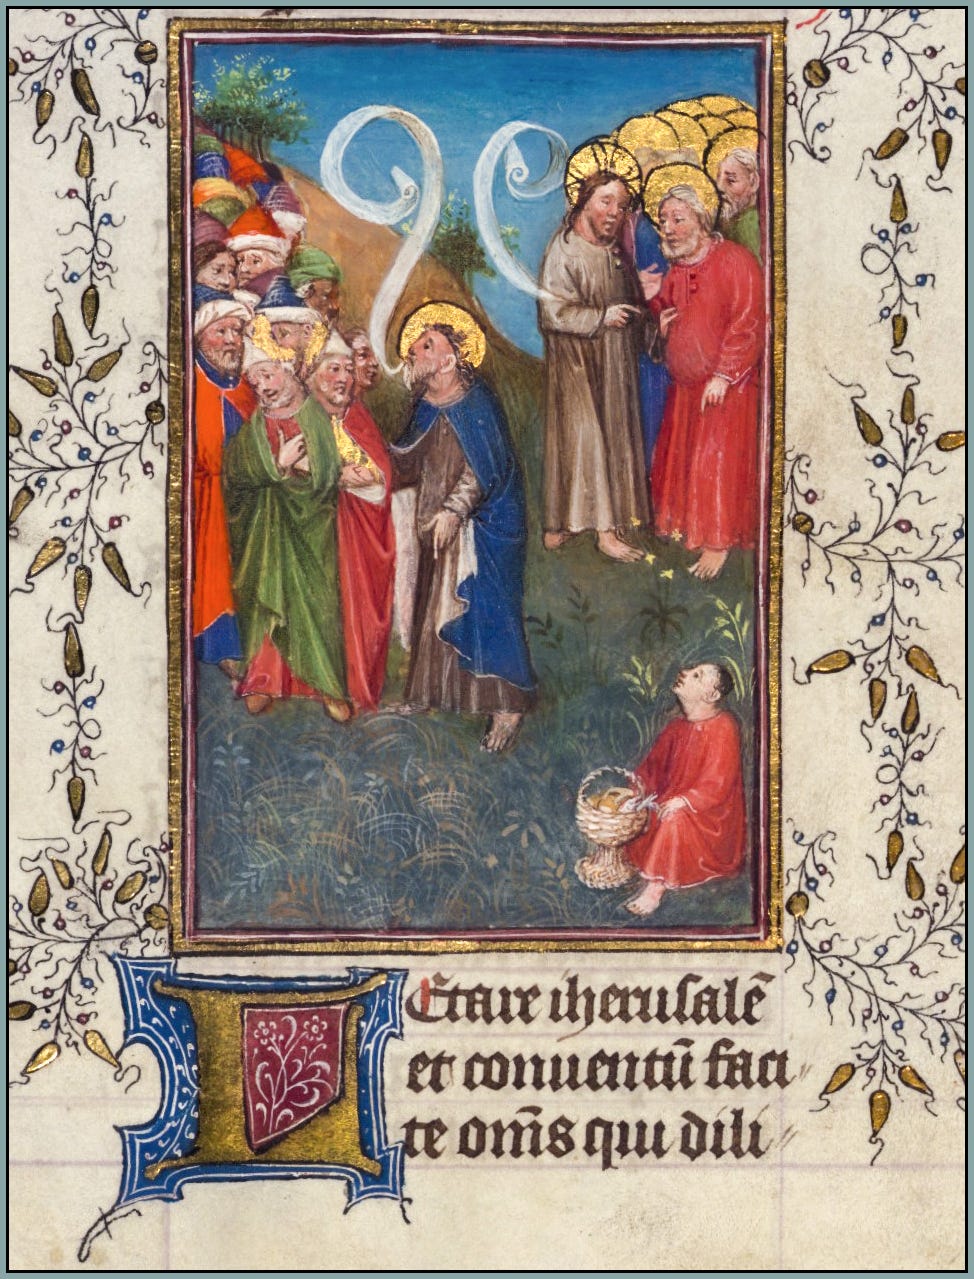 LEtare iherusalē
et conuentū faci
te om̄s qui dili